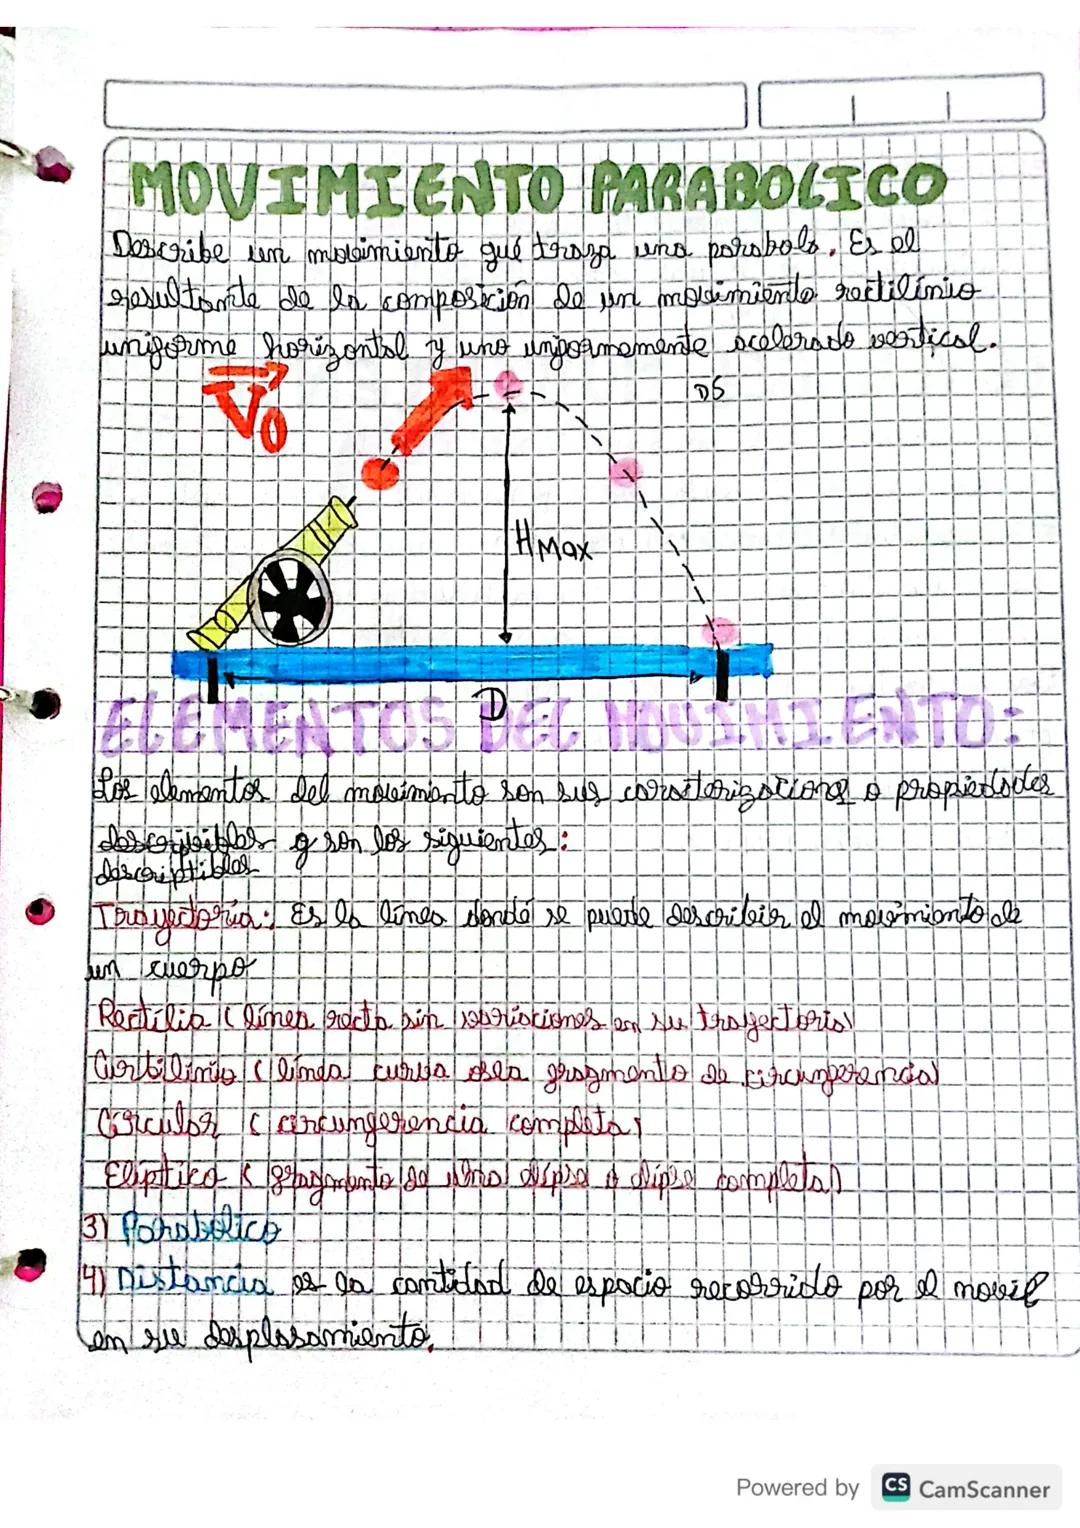 MOVIMIENTO PARABOLICO
Describe un movimiento qué traza una parabola. Es el
resultante de la composición de un movimiento rectilínio
uniforme horizontal y uno unjormemente acelerado vertical.
V0
DS
HMax
D
ELEMENTOS DEL MOVIMIENTO:
Los elementos del movimiento son sus caracterizaciones o propiedades
describibles y son los siguientes:
descriptibles
Trayectoria: Es la línea dondé se puede describir el movimiento de
un cuerpo
Rectilia (línea recta sin variaciones en su trayectoria)
Curbilinio (línea curva osea fragmento de circunferencia)
Circular (circunferencia completa)
Eliptica (fragmento de una elipse o elipse completa)
3) Parabolico
4) Distancia es la cantidad de espacio recorrido por el movil
en su desplasamiento.
Powered by CS CamScanner